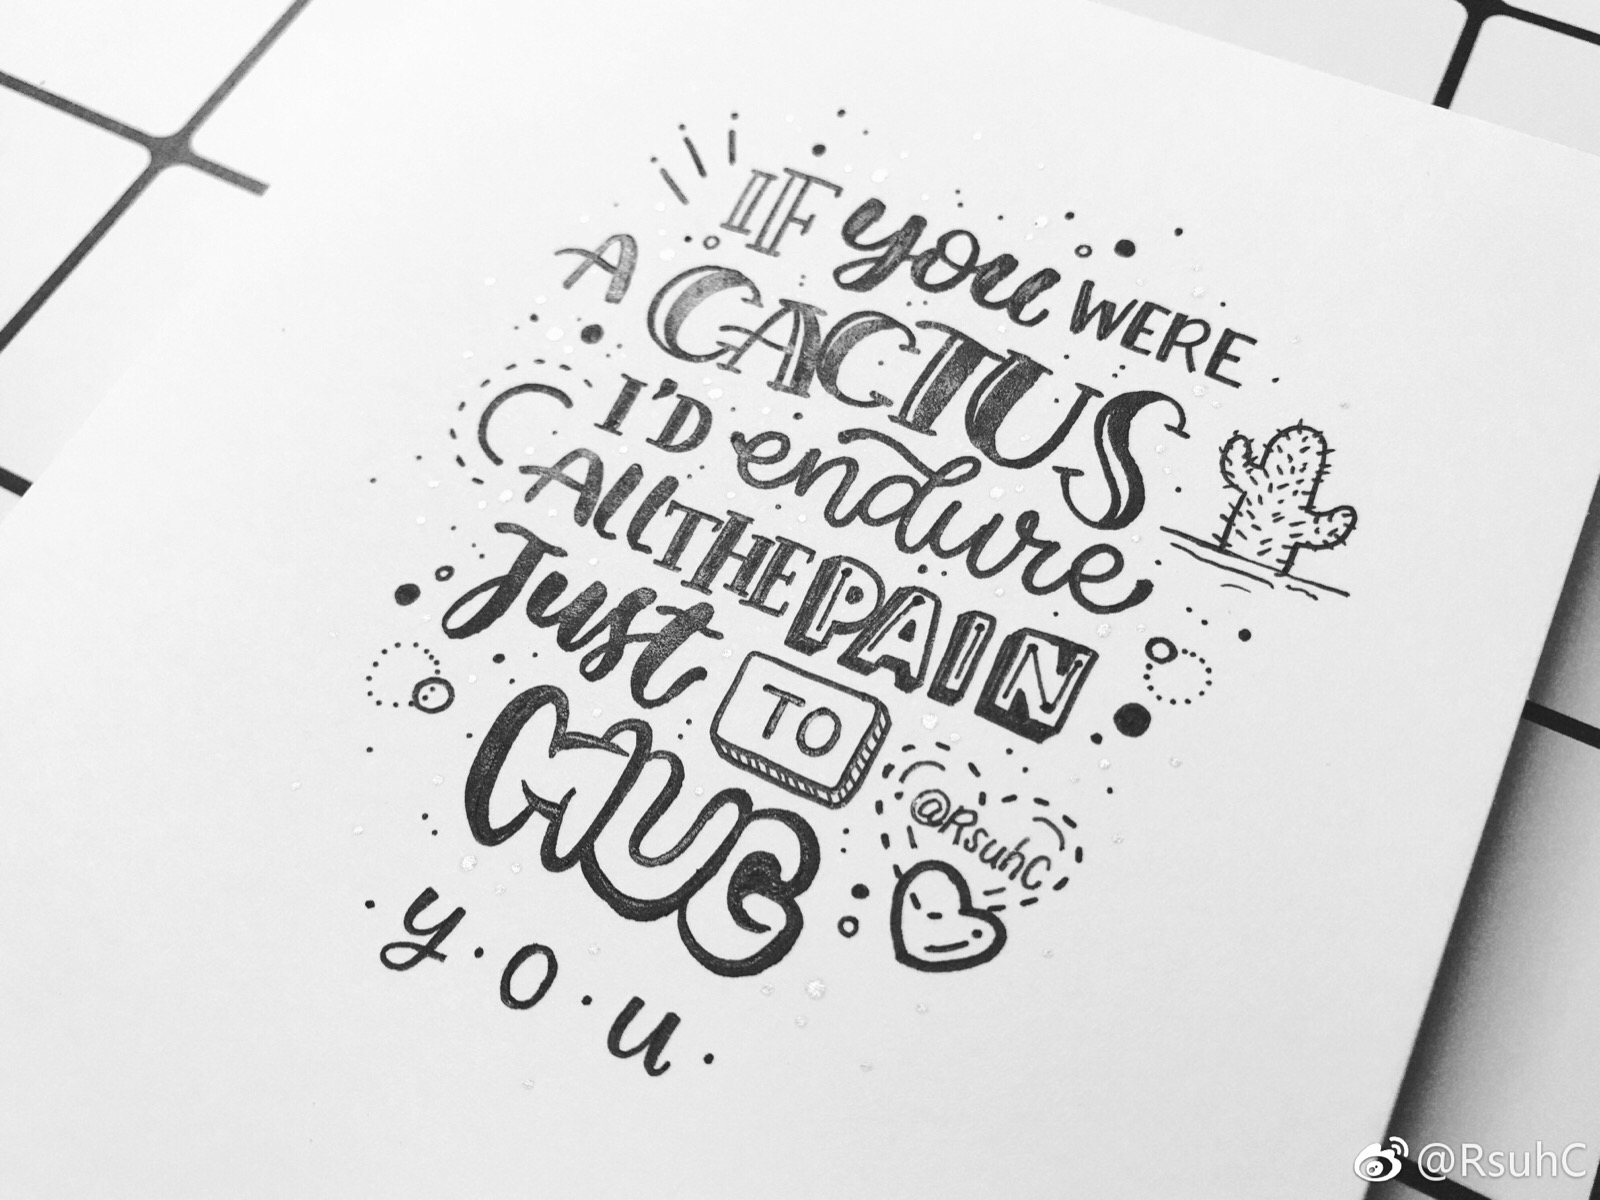 IF you WERE
A CACTUS
I'D endure
All THE PAIN
Just TO
HUG
y.o.u.
@RsuhC
@RsuhC